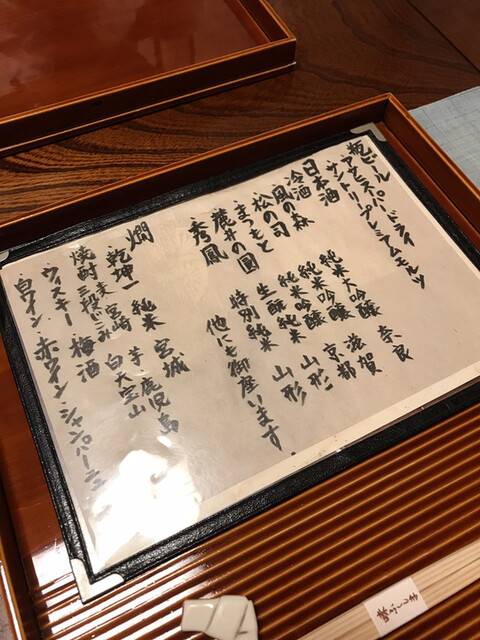 瓶ビール
アサヒスーパードライ
サントリープレミアムモルツ
日本酒
冷酒
風の森 純米大吟醸 奈良
松の司 純米吟醸 滋賀
まつもと 純米吟醸 京都
麓井の圓 生酛純米 山形
秀鳳 特別純米 山形
他にも御座います。
燗
乾坤一 純米 宮城
焼酎 麦 宮崎 三段じこみ 芋 鹿児島 白天宝山
ウィスキー 梅酒
白ワイン 赤ワイン シャンパーニュ